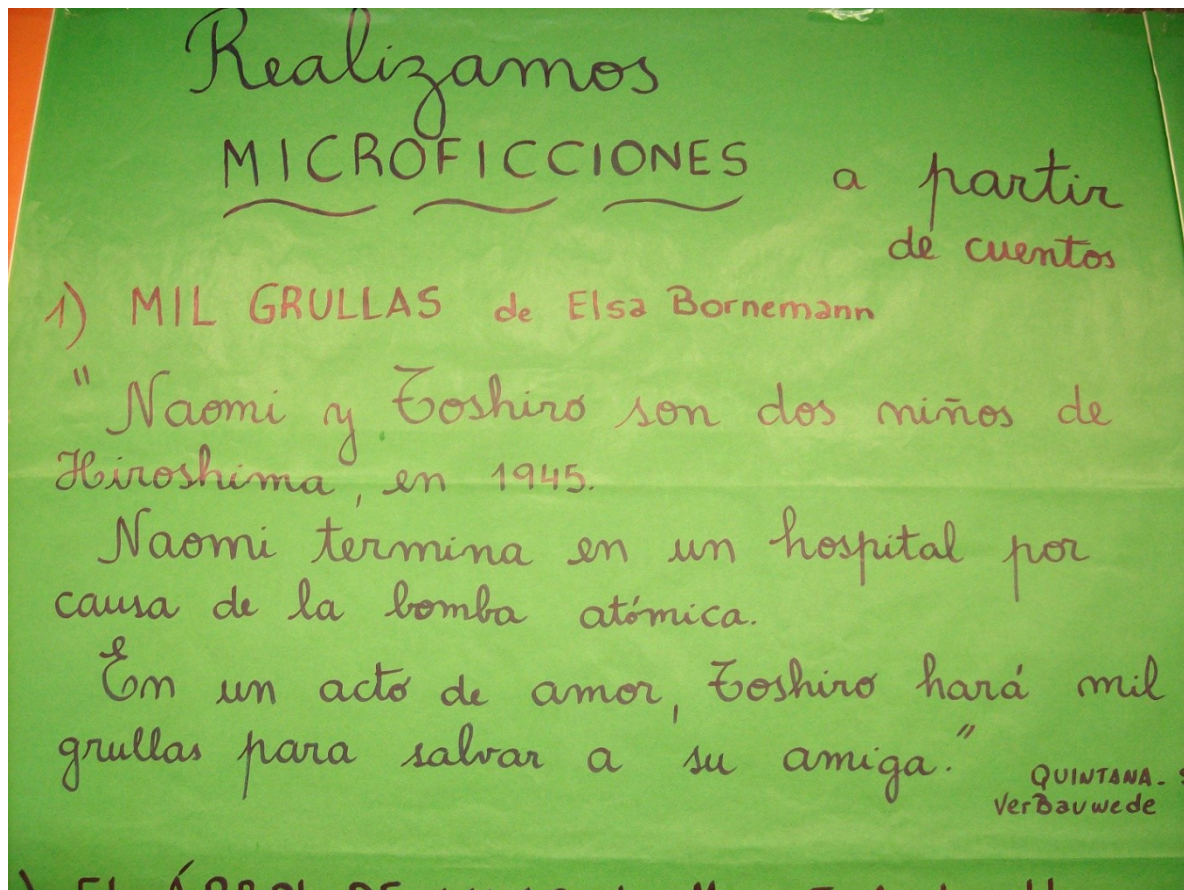 Realizamos
MICROFICCIONES a partir
de cuentos
1) MIL GRULLAS de Elsa Bornemann
"Naomi y Toshiro son dos niños de
Hiroshima, en 1945.
Naomi termina en un hospital por
causa de la bomba atómica.
En un acto de amor, Toshiro hará mil
grullas para salvar a su amiga."
QUINTANA-
VerBauwede
EL ÁRBOL DE